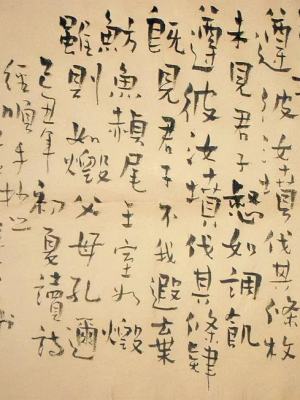 遵彼汝墳伐其條枚
未見君子惄如調飢
遵彼汝墳伐其條肄
既見君子不我遐棄
魴魚赬尾王室如燬
雖則如燬父母孔邇
己丑年初夏讀詩
經順手抄